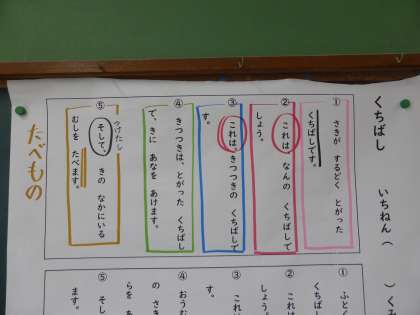 くちばし　いちねん（　　）くみ
①
さきが　するどく　とがった
くちばしです。
②
これは　なんの　くちばしで
しょう。
③
これは、きつつきの　くちばしで
す。
④
きつつきは、とがった　くちばし
で、きに　あなを　あけます。
⑤
つけたし
そして、きの　なかにいる
むしを　たべます。
たべもの
①
ふとく
くちば
②
これは
しょう
③
これ
す。
④
おうむ
の　さき
らを　あ
⑤
そし
ます。